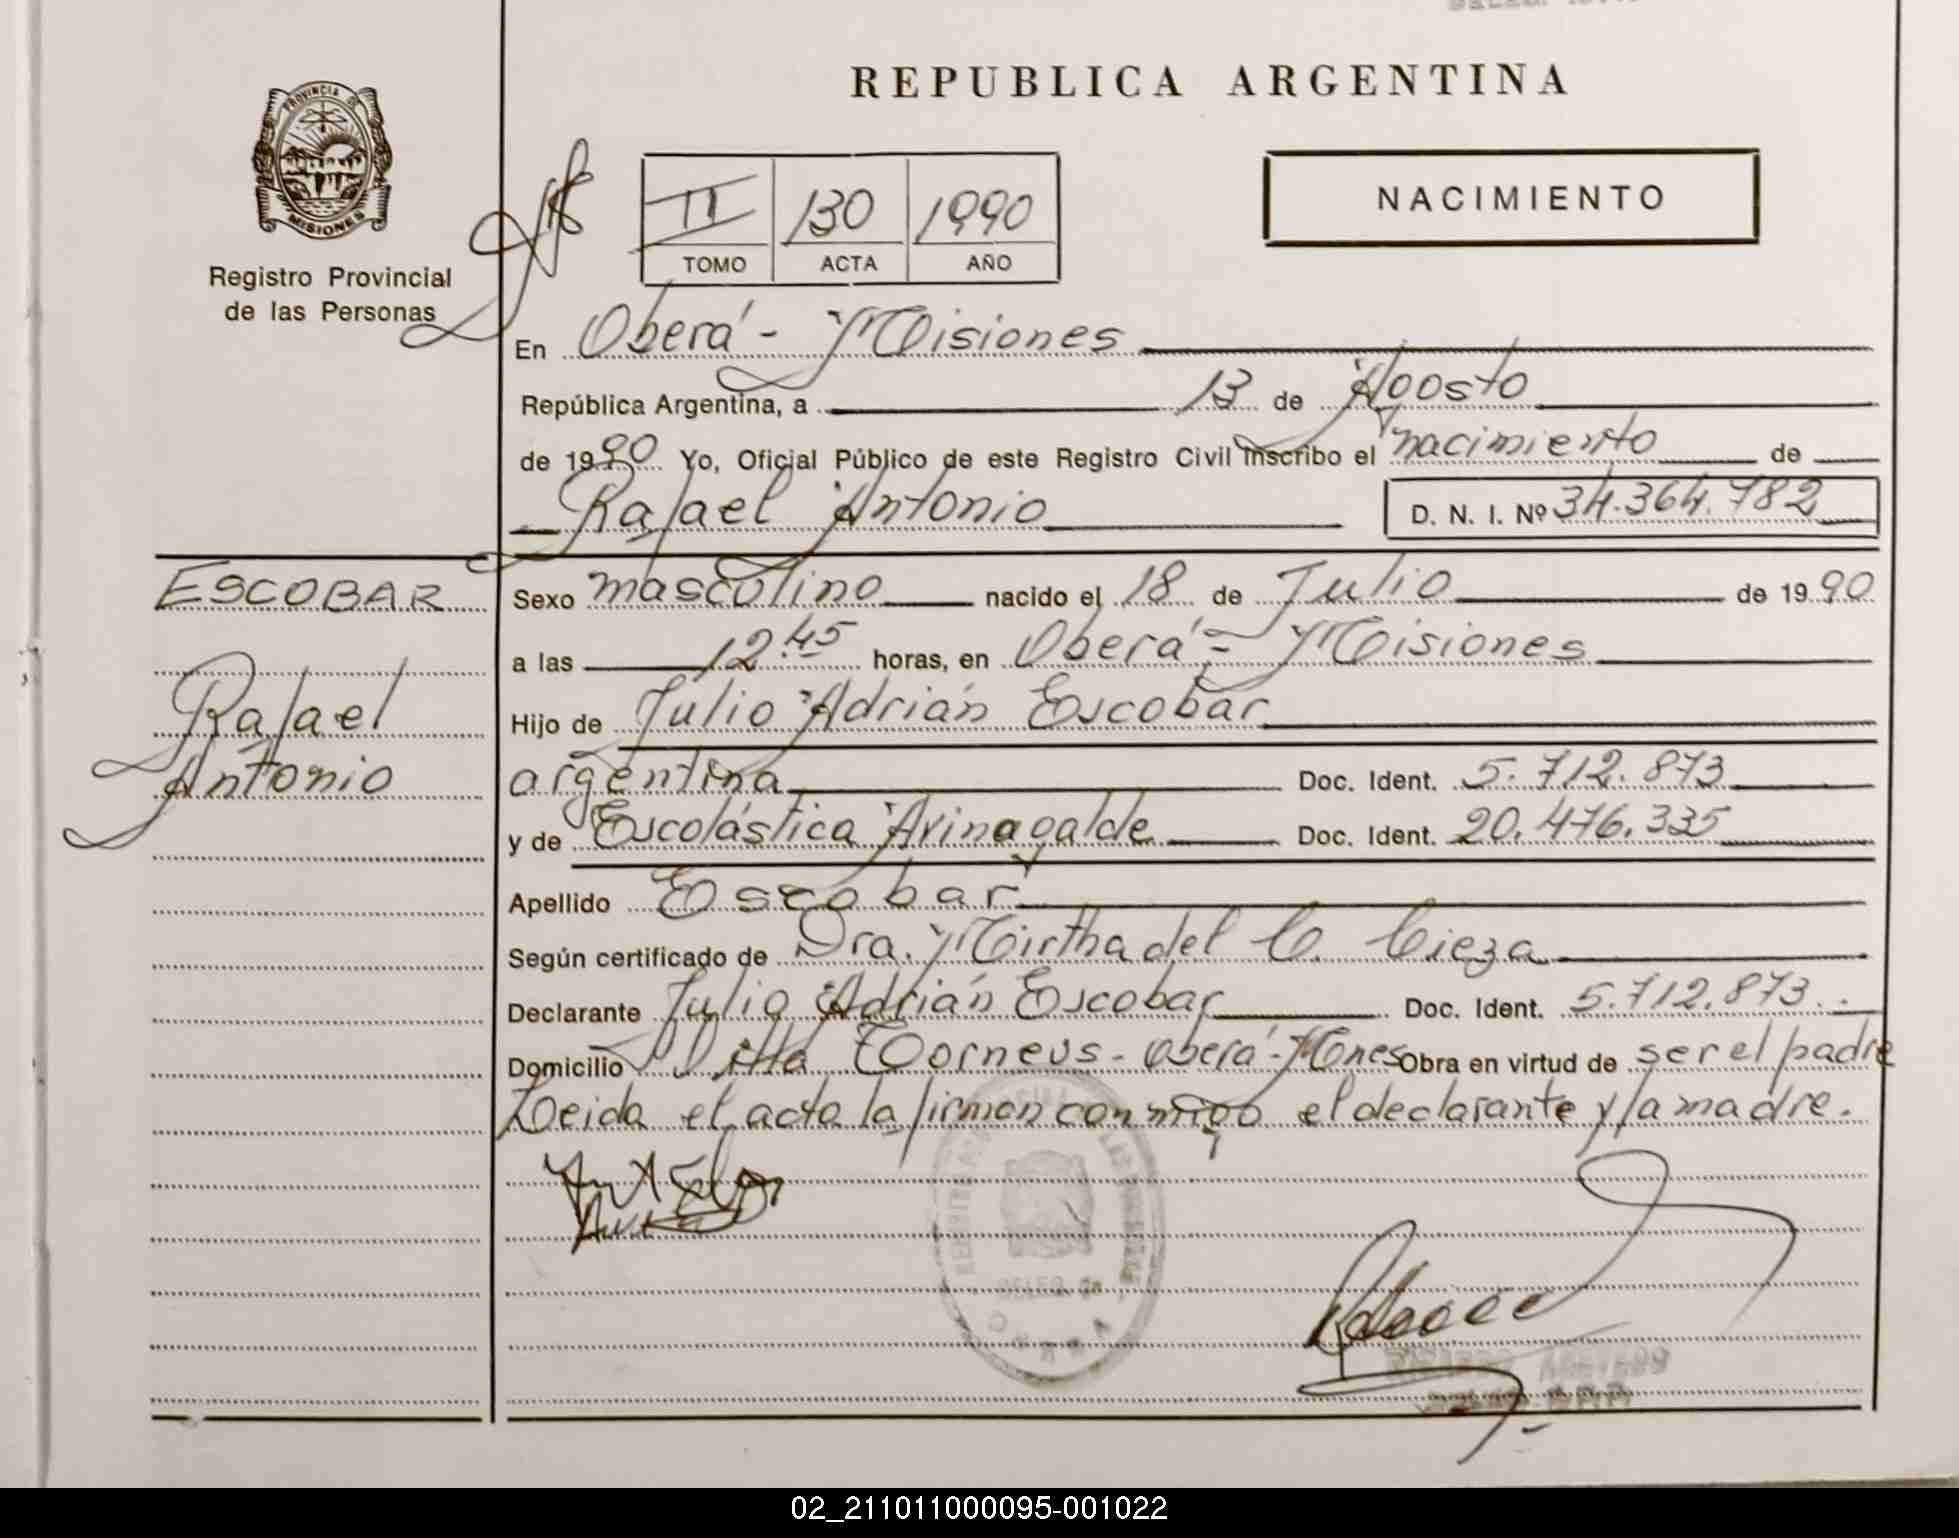 REPUBLICA ARGENTINA
PROVINCIA DE
MISIONES
Registro Provincial
de las Personas
II 130 1990
TOMO ACTA AÑO
NACIMIENTO
En Oberá - Misiones
República Argentina, a 13 de Agosto
de 1990 Yo, Oficial Público de este Registro Civil inscribo el nacimiento de
Rafael Antonio D. N. I. Nº 34.364.782
ESCOBAR
Rafael
Antonio
Sexo masculino nacido el 18 de Julio de 1990
a las 12.45 horas, en Oberá - Misiones
Hijo de Julio Adrián Escobar
argentina Doc. Ident. 5.712.873
y de Escolástica Arinagalde Doc. Ident. 20.476.335
Apellido Escobar
Según certificado de Dra. Mirtha del C. Cieza
Declarante Julio Adrián Escobar Doc. Ident. 5.712.873
Domicilio Villa Torneus - Oberá - Mnes Obra en virtud de ser el padre
Leida el acta la firman conmigo el declarante y la madre.
02_211011000095-001022